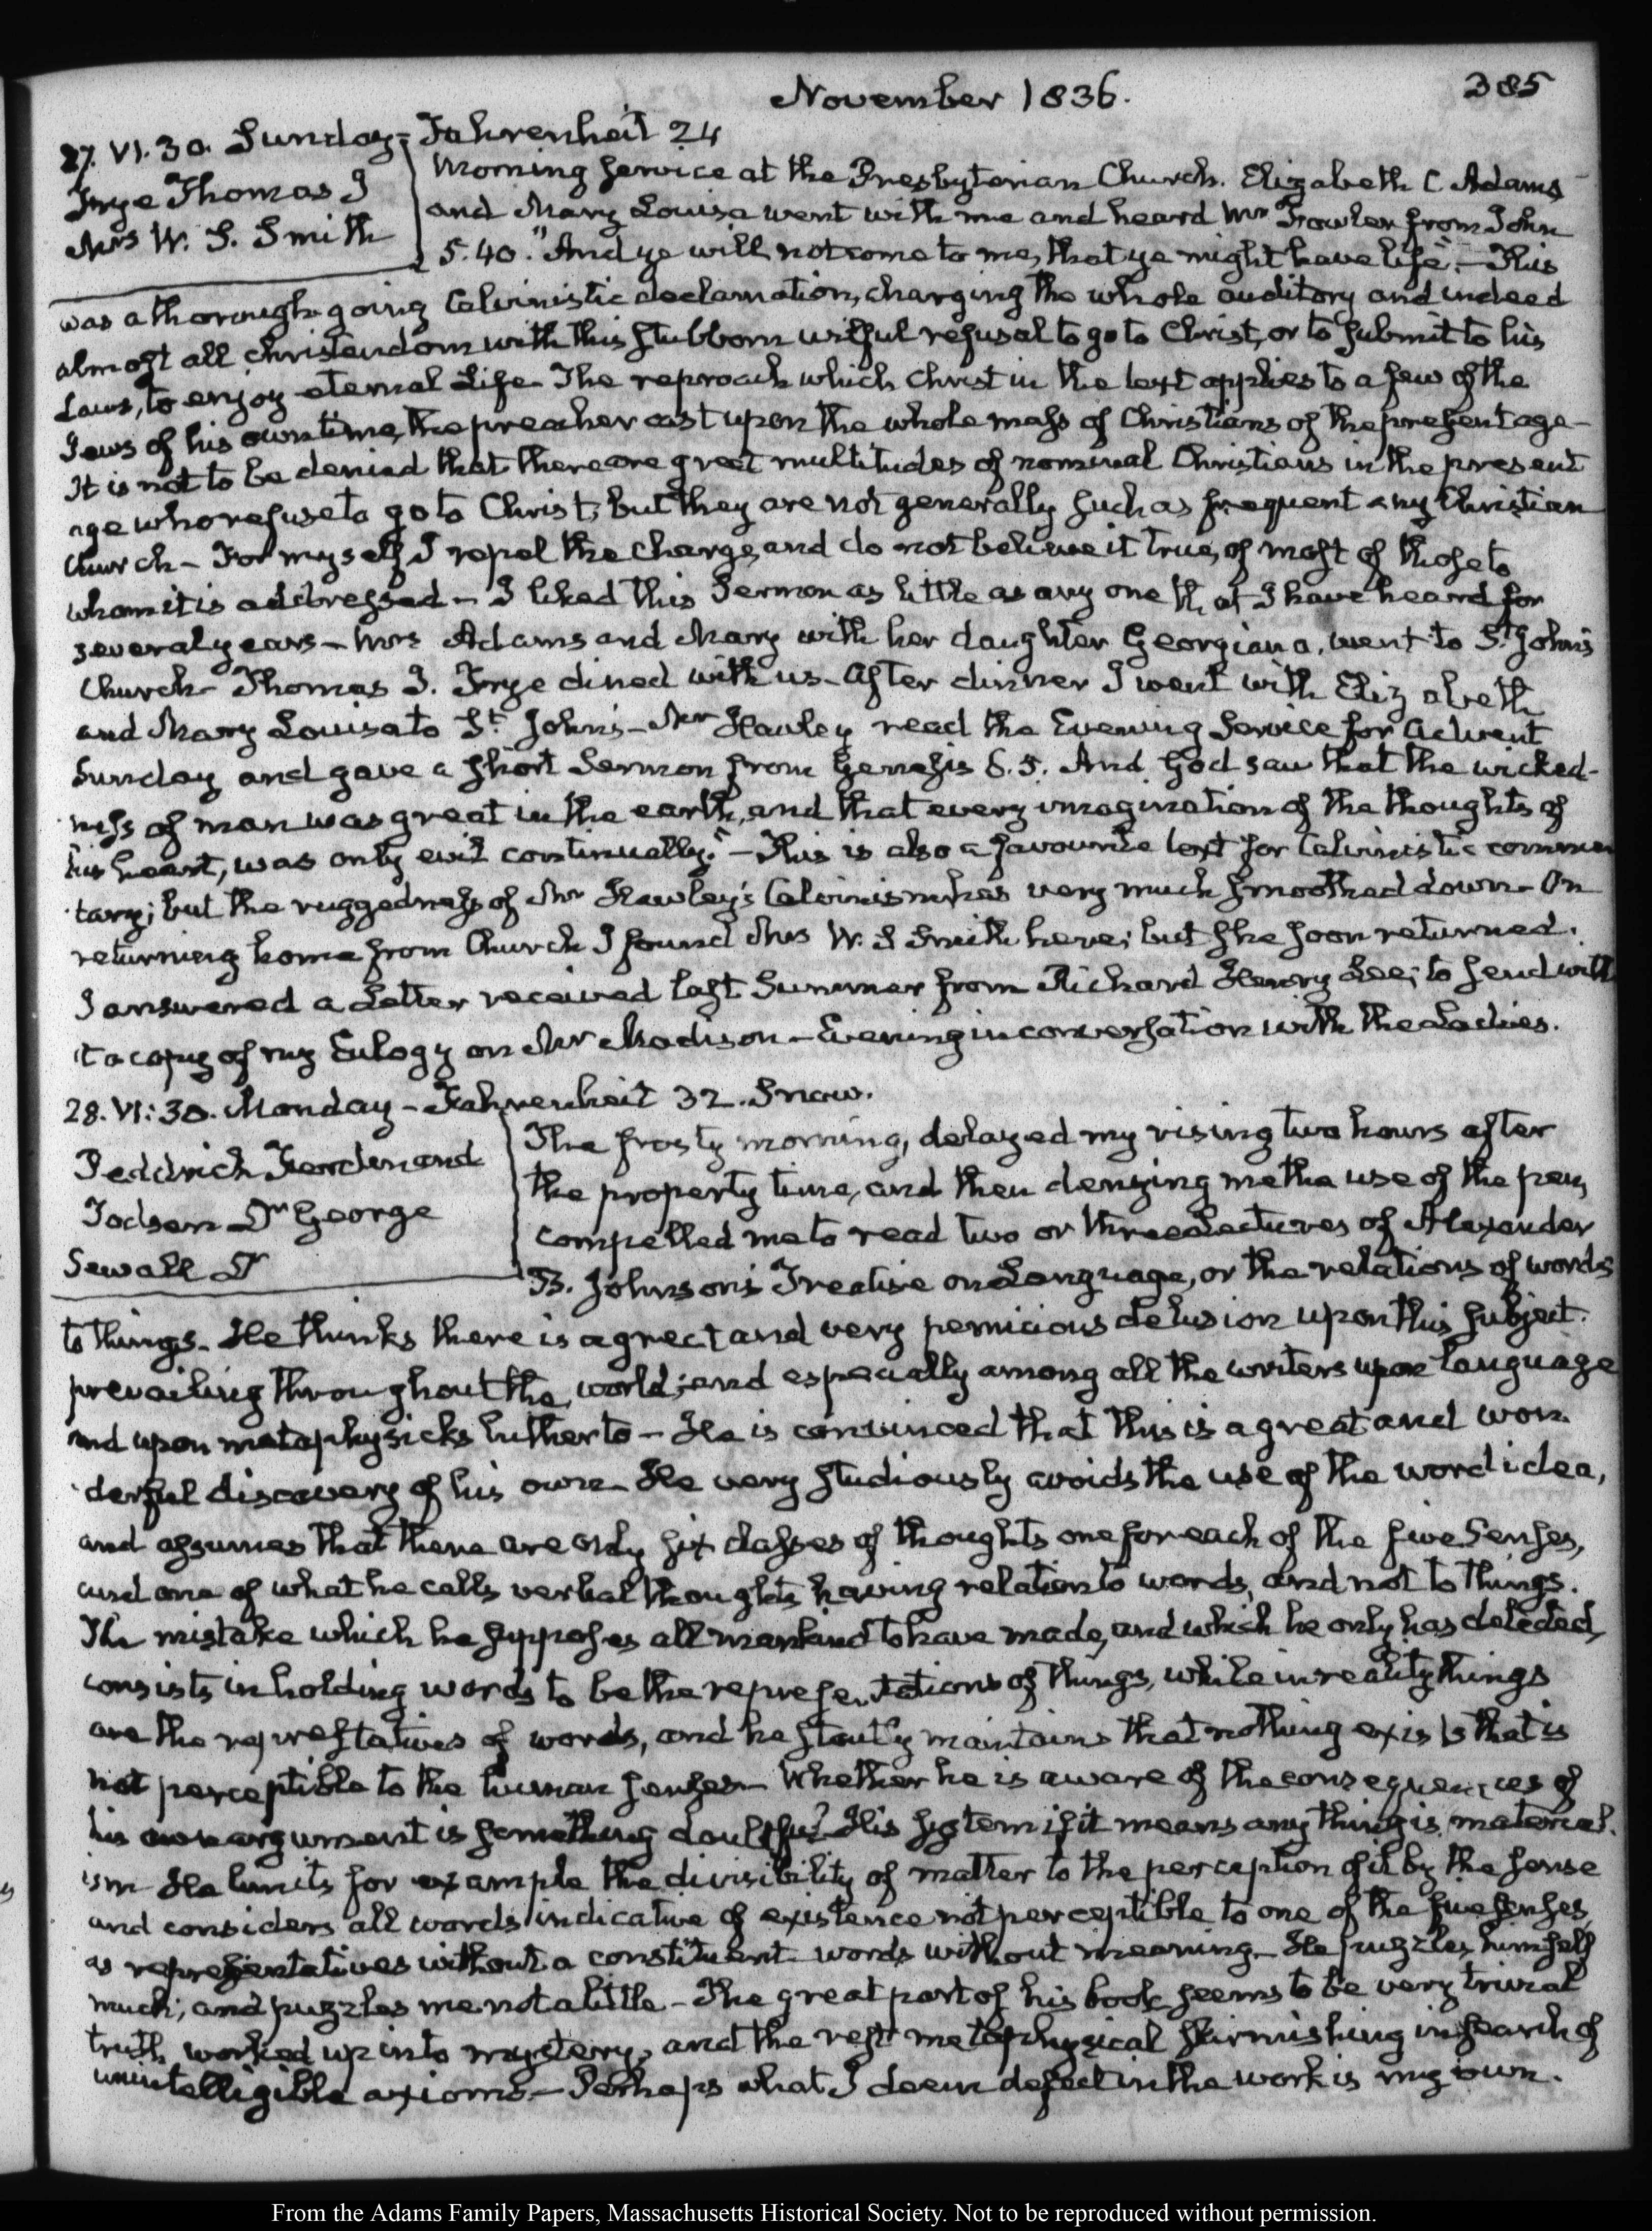 November 1836.
385
27. VI. 30. Sunday. Fahrenheit 24
Frye Thomas J
Mrs W. S. Smith
Morning service at the Presbyterian Church. Elizabeth C Adams
and Mary Louisa went with me and heard Mr Fowler from John
5. 40. "And ye will not come to me, that ye might have life". - This
was a thorough going Calvinistic declamation, charging the whole auditory and indeed
almost all christendom with this stubborn wilful refusal to go to Christ, or to submit to his
Laws, to enjoy eternal Life. The reproach which Christ in the text applies to a few of the
Jews of his own time, the preacher cast upon the whole mass of Christians of the present age -
It is not to be denied that there are great multitudes of nominal Christians in the present
age who refuse to go to Christ; but they are not generally such as frequent any Christian
Church - For myself I repel the charge, and do not believe it true, of most of those to
whom it is addressed - I liked this Sermon as little as any one that I have heard for
several years - Mrs Adams and Mary with her daughter Georgiana, went to St. John's
Church - Thomas J. Frye dined with us - After dinner I went with Elizabeth
and Mary Louisa to St. John's - Mr Hawley read the Evening Service for Advent
Sunday and gave a short Sermon from Genesis 6. 5. And God saw that the wicked-
ness of man was great in the earth, and that every imagination of the thoughts of
his heart, was only evil continually." - This is also a favourite text for Calvinistic commen
tary; but the ruggedness of Mr Hawley's Calvinism has very much smoothed down - On
returning home from Church I found Mrs W. S Smith here; but she soon returned.
I answered a Letter received last Summer from Richard Henry Lee; to send with
it a copy of my Eulogy on Mr Madison - Evening in conversation with the Ladies.
28. VI: 30. Monday - Fahrenheit 32. Snow.
Peddrich Ferdinand
Todsen Dr George
Sewall Dr
The frosty morning, delayed my rising two hours after
the property time, and then denying me the use of the pen,
compelled me to read two or three Lectures of Alexander
B. Johnson's Treatise on Language, or the relations of words
to things. He thinks there is a great and very pernicious delusion upon this subject
prevailing throughout the world; and especially among all the writers upon language
and upon metaphysicks hitherto - He is convinced that this is a great and won
derful discovery of his own - He very studiously avoids the use of the word idea,
and assumes that there are only six classes of thoughts one for each of the five Senses,
and one of what he calls verbal thoughts having relation to words, and not to things.
The mistake which he supposes all mankind to have made, and which he only has detected,
consists in holding words to be the representations of things, while in reality things
are the represtatives of words, and he stoutly maintains that nothing exists that is
not perceptible to the human senses - Whether he is aware of the consequences of
his own argument is something doubtful. His system if it means any thing is material.
ism - He limits for example the divisibility of matter to the perception of it by the sense
and considers all words indicative of existence not perceptible to one of the five senses,
as representatives without a constituent - words without meaning - He puzzles himself
much; and puzzles me not a little - The great part of his book seems to be very trivial
truth, worked up into mystery, and the rest metaphysical skirmishing in search of
unintelligible axioms. - Perhaps what I deem defect in the work is my own.
From the Adams Family Papers, Massachusetts Historical Society. Not to be reproduced without permission.